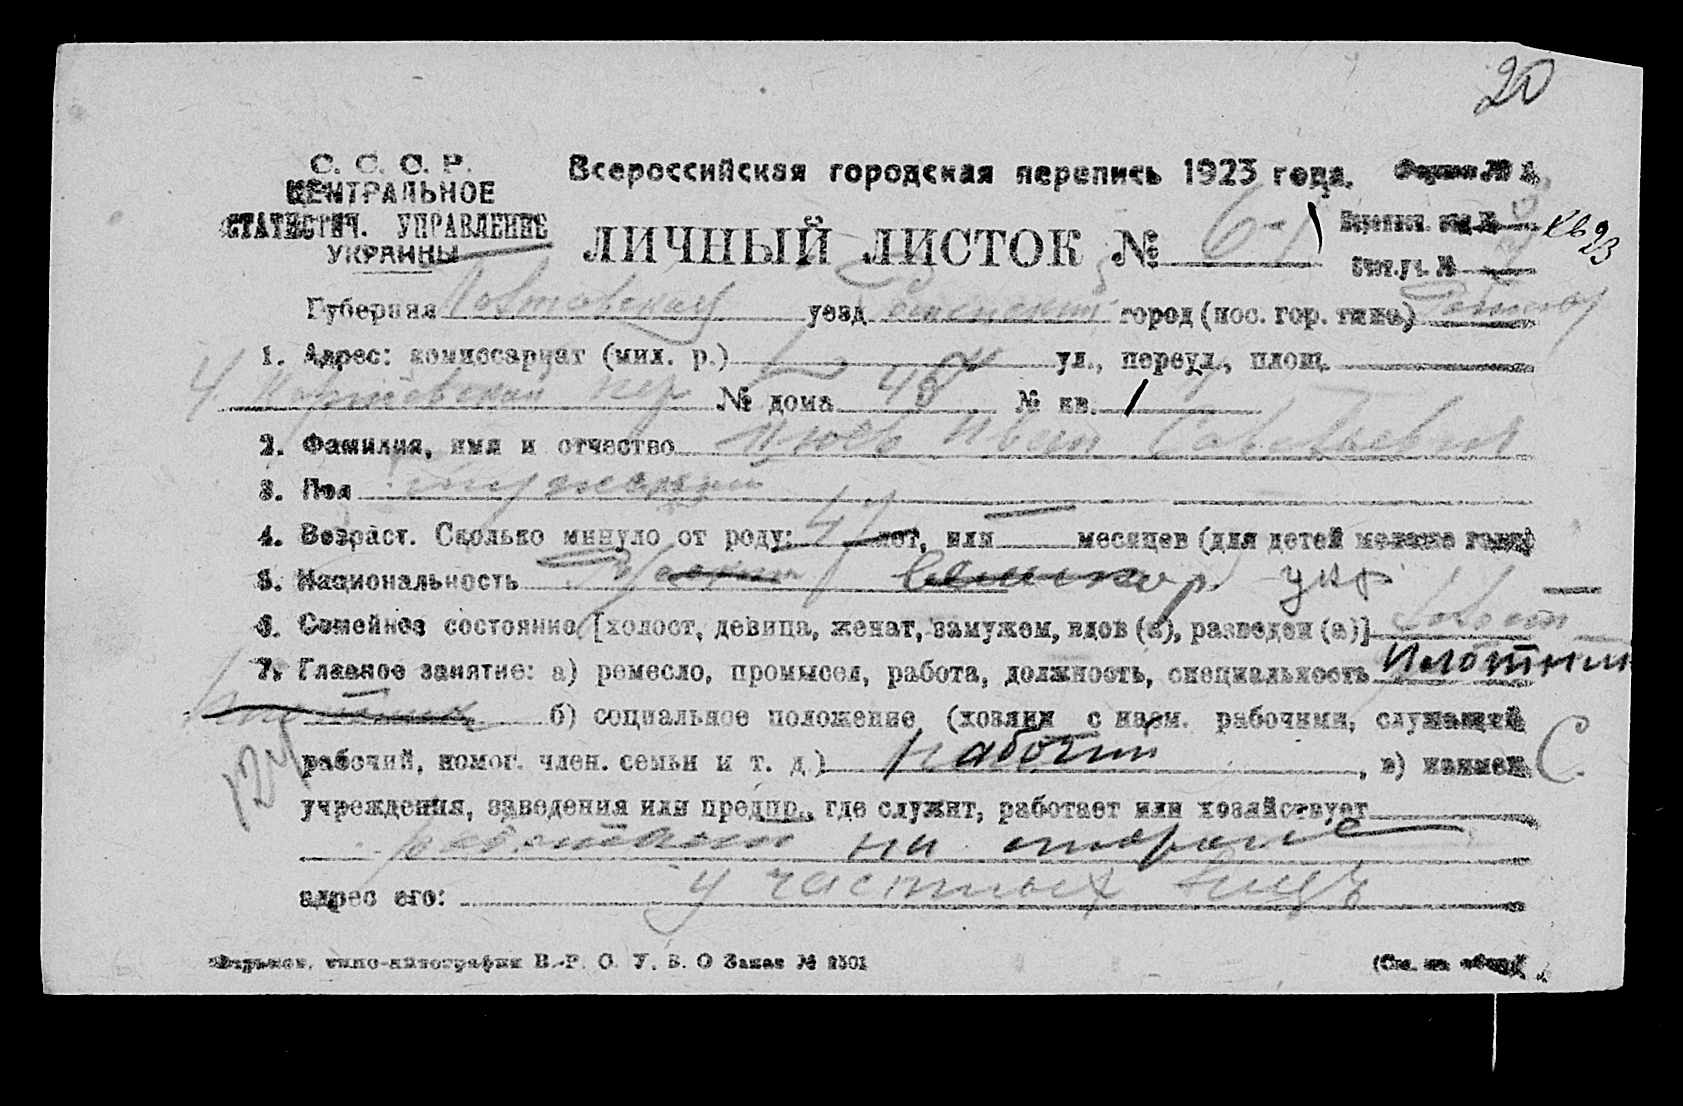 20
С. С. С. Р.
ЦЕНТРАЛЬНОЕ
СТАТИСТИЧ. УПРАВЛЕНИЕ
УКРАИНЫ
Всероссийская городская перепись 1923 года.
Форма № 1.
ЛИЧНЫЙ ЛИСТОК №
Переписн. отд. №
кв 23
Счет. уч. №
Губерния Полтавская уезд Роменский город (пос. гор. типа) Ромны
1. Адрес: комиссариат (мил. р.) ул., переул., площ.
пер № дома 48 № кв. 1
2. Фамилия, имя и отчество Иван Савельевич
3. Пол мужской
4. Возраст. Сколько минуло от роду: 47 лет, или месяцев (для детей моложе года)
5. Национальность Великор. укр
6. Семейное состояние [холост, девица, женат, замужем, вдов (а), разведен (а)]
7. Главное занятие: а) ремесло, промысел, работа, должность, специальность Плотник
б) социальное положение (хозяин с наем. рабочими, служащий
рабочий, помог. член. семьи и т. д.) Рабочий, в) наимен.
С.
124
учреждения, заведения или предпр., где служит, работает или хозяйствует
работает на стороне
адрес его: у частных лиц
типо-литография В. Р. С. У. В. О Заказ № 2501
(См. на обор.)